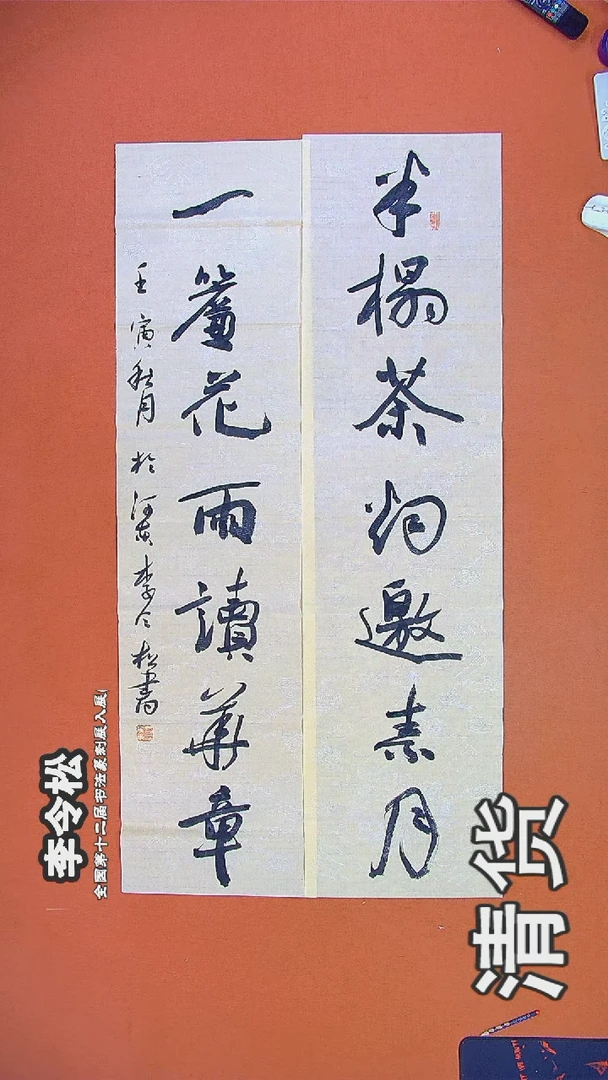 半榻茶烟邀素月
一帘花雨读华章
壬寅秋月於江东李令松书
李令松
全国第十二届书法篆刻展入展
清货